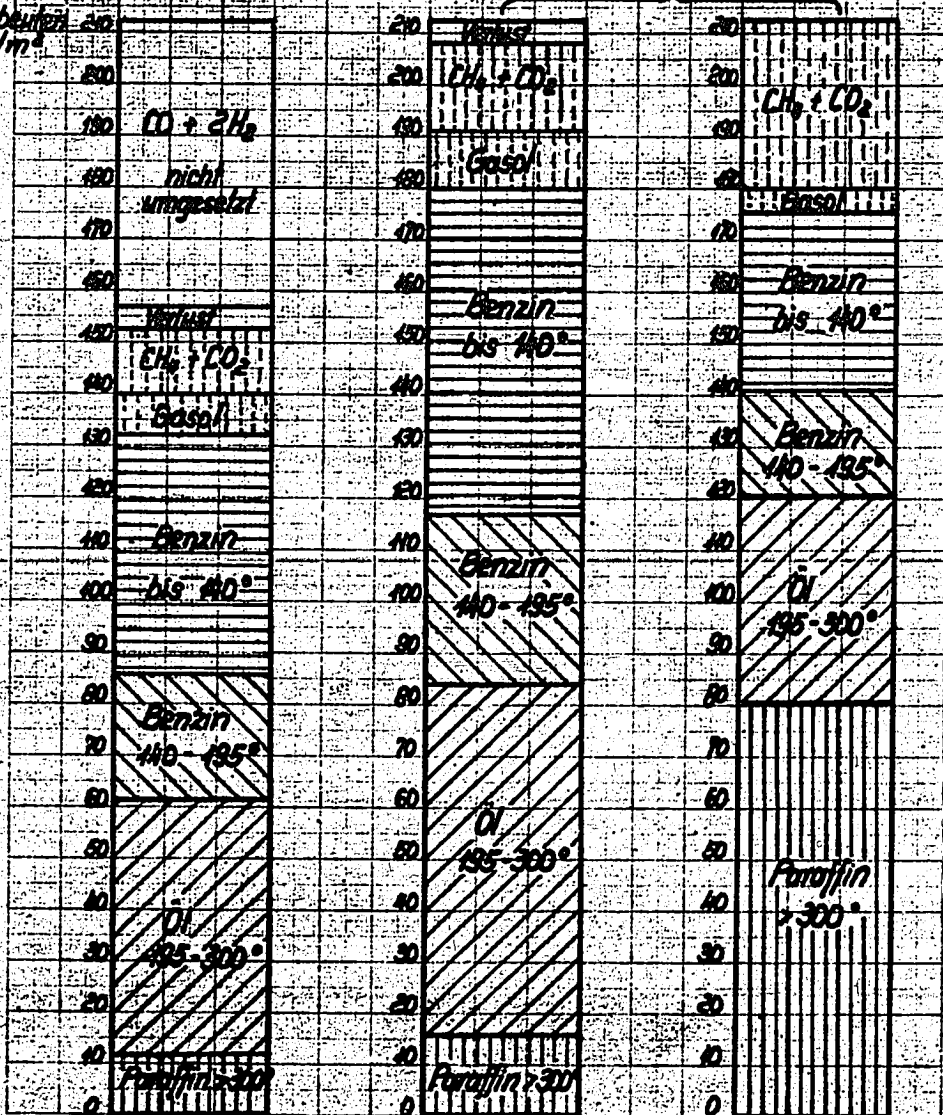 /m³
210
200
190
180
170
160
150
140
130
120
110
100
90
80
70
60
50
40
30
20
10
0
CO + 2H₂
nicht
umgesetzt
Verlust
CH₄ + CO₂
Gasol
Benzin
bis 140°
Benzin
140-195°
Öl
195-300°
Paraffin >300°
210
200
190
180
170
160
150
140
130
120
110
100
90
80
70
60
50
40
30
20
10
0
Verlust
CH₄ + CO₂
Gasol
Benzin
bis 140°
Benzin
140-195°
Öl
195-300°
Paraffin >300°
210
200
190
180
170
160
150
140
130
120
110
100
90
80
70
60
50
40
30
20
10
0
CH₄ + CO₂
Gasol
Benzin
bis 140°
Benzin
140-195°
Öl
195-300°
Paraffin
>300°